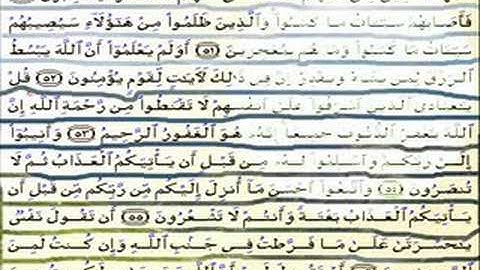 فَأَصَابَهُمْ سَيِّـَٔاتُ مَا كَسَبُوا۟ وَٱلَّذِينَ ظَلَمُوا۟ مِنْ هَـٰٓؤُلَآءِ سَيُصِيبُهُمْ
سَيِّـَٔاتُ مَا كَسَبُوا۟ وَمَا هُم بِمُعْجِزِينَ ٥١ أَوَلَمْ يَعْلَمُوٓا۟ أَنَّ ٱللَّهَ يَبْسُطُ
ٱلرِّزْقَ لِمَن يَشَآءُ وَيَقْدِرُ إِنَّ فِى ذَٰلِكَ لَـَٔايَـٰتٍ لِّقَوْمٍ يُؤْمِنُونَ ٥٢ قُلْ
يَـٰعِبَادِىَ ٱلَّذِينَ أَسْرَفُوا۟ عَلَىٰٓ أَنفُسِهِمْ لَا تَقْنَطُوا۟ مِن رَّحْمَةِ ٱللَّهِ إِنَّ
ٱللَّهَ يَغْفِرُ ٱلذُّنُوبَ جَمِيعًا إِنَّهُۥ هُوَ ٱلْغَفُورُ ٱلرَّحِيمُ ٥٣ وَأَنِيبُوٓا۟
إِلَىٰ رَبِّكُمْ وَأَسْلِمُوا۟ لَهُۥ مِن قَبْلِ أَن يَأْتِيَكُمُ ٱلْعَذَابُ ثُمَّ لَا
تُنصَرُونَ ٥٤ وَٱتَّبِعُوٓا۟ أَحْسَنَ مَآ أُنزِلَ إِلَيْكُم مِّن رَّبِّكُم مِّن قَبْلِ أَن
يَأْتِيَكُمُ ٱلْعَذَابُ بَغْتَةً وَأَنتُمْ لَا تَشْعُرُونَ ٥٥ أَن تَقُولَ نَفْسٌ
يَـٰحَسْرَتَىٰ عَلَىٰ مَا فَرَّطتُ فِى جَنۢبِ ٱللَّهِ وَإِن كُنتُ لَمِنَ